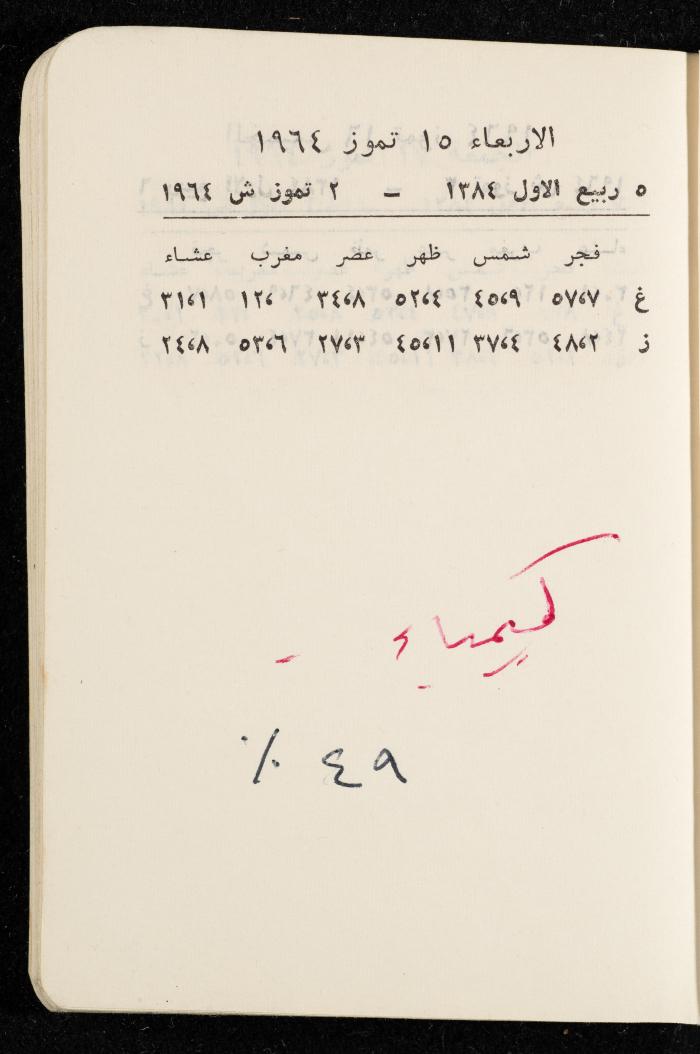 الاربعاء ١٥ تموز ١٩٦٤
٥ ربيع الاول ١٣٨٤ – ٢ تموز ش ١٩٦٤
فجر شمس ظهر عصر مغرب عشاء
غ ٥٧،٧ ٤٥،٩ ٥٢،٤ ٣٤،٨ ١٢، ٣١،١
ز ٤٨،٢ ٣٧،٤ ٤٥،١١ ٢٧،٣ ٥٣،٦ ٢٤،٨
كيمياء -
٤٩ ٪